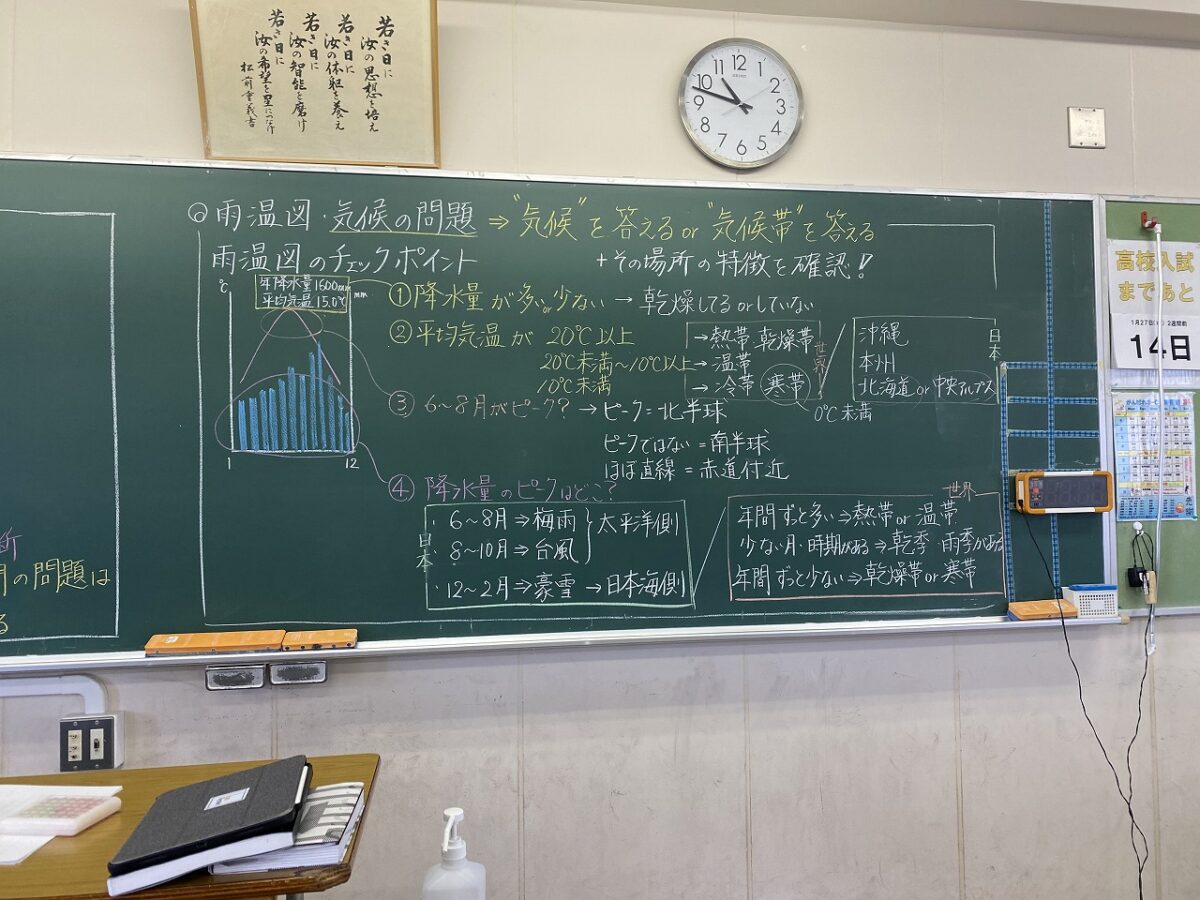 若き日に
汝の思想を培え
若き日に
汝の体躯を養え
若き日に
汝の智能を磨け
若き日に
汝の希望を星につなげ
松前重義書
12 1 2 3 4 5 6 7 8 9 10 11
SEIKO
◎雨温図・気候の問題 ⇒ "気候"を答えるor"気候帯"を答える
雨温図のチェックポイント
+その場所の特徴を確認!
℃
年降水量1600mm
平均気温15.0℃
mm
1
12
①降水量が多いor少ない → 乾燥してるorしていない
②平均気温が 20℃以上 →熱帯 乾燥帯
20℃未満~10℃以上 →温帯
10℃未満 →冷帯 寒帯
0℃未満
世界
沖縄
本州
北海道or中央アルプス
日本
③6~8月がピーク? → ピーク=北半球
ピークではない=南半球
ほぼ直線=赤道付近
④降水量のピークはどこ?
日本
・6~8月⇒梅雨
・8~10月⇒台風
太平洋側
・12~2月⇒豪雪 →日本海側
世界
年間ずっと多い⇒熱帯or温帯
少ない月・時期がある⇒乾季・雨季がある
年間ずっと少ない⇒乾燥帯or寒帯
断
の問題は
る
高校入試
まであと
14日